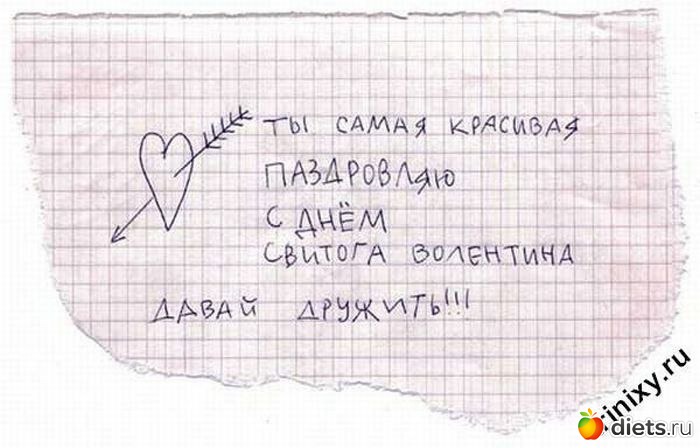 ТЫ САМАЯ КРАСИВАЯ
ПАЗДРОВЛЯЮ
С ДНЁМ
СВИТОГА ВОЛЕНТИНА
ДАВАЙ ДРУЖИТЬ!!!
diets.ru